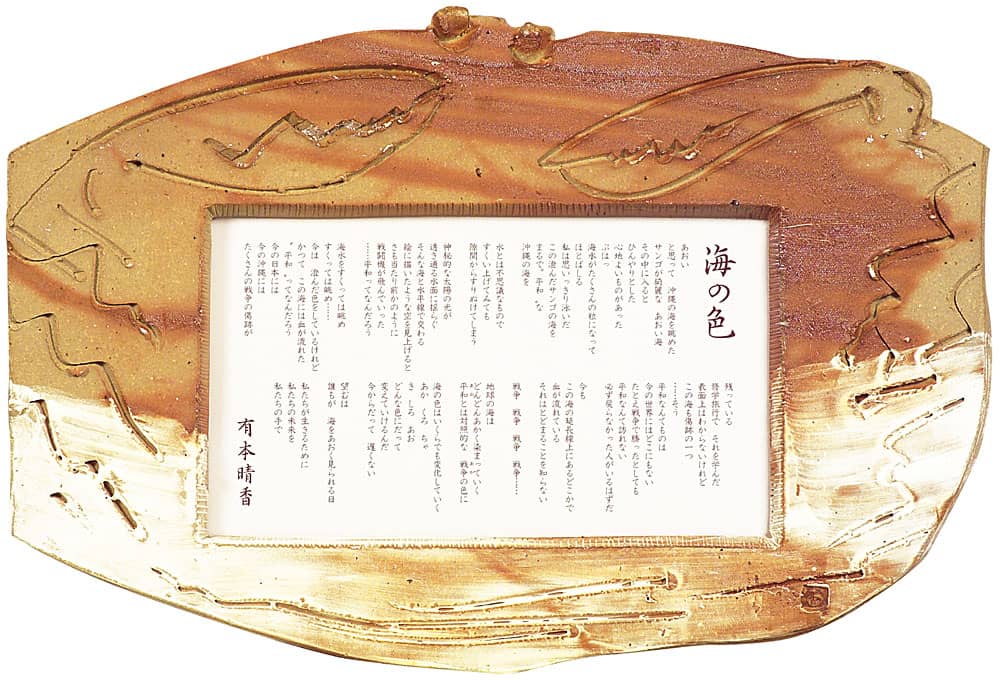 海の色
あおい
と思って 沖縄の海を眺めた
サンゴが綺麗な あおい海
その中に入ると
ひんやりとした
心地よいものがあった
ぷはっ
海水がたくさんの粒になって
ほとばしる
私は思いっきり泳いだ
この澄んだサンゴの海を
まるで〝平和〟な
沖縄の海を
水とは不思議なもので
すくい上げてみても
隙間からすりぬけてしまう
神秘的な太陽の光が
透き通る水面に揺らぐ
そんな海と水平線で交わる
絵に描いたような空を見上げると
さも当たり前かのように
戦闘機が飛んでいった
……平和ってなんだろう
海水をすくっては眺め
すくっては眺め……
今は 澄んだ色をしているけれど
かつて この海には血が流れた
〝平和〟ってなんだろう
今の日本には
今の沖縄には
たくさんの戦争の傷跡が
残っている
修学旅行で それを学んだ
表面上はわからないけれど
この海も傷跡の一つ
……そう
平和なんてものは
今の世界にはどこにもない
たとえ戦争で勝ったとしても
平和なんて訪れない
必ず戻らなかった人がいるはずだ
今も
この海の延長線上にあるどこかで
血が流れている
それはとどまることを知らない
戦争 戦争 戦争 戦争……
地球の海は
どんどんあかく染まっていく
平和とは対照的な 戦争の色に
海の色はいくらでも変化していく
あか くろ ちゃ
き しろ あお
どんな色にだって
変えていけるんだ
今からだって 遅くない
望むは
誰もが 海をあおく見られる日
私たちが生きるために
私たちの未来を
私たちの手で
有本晴香